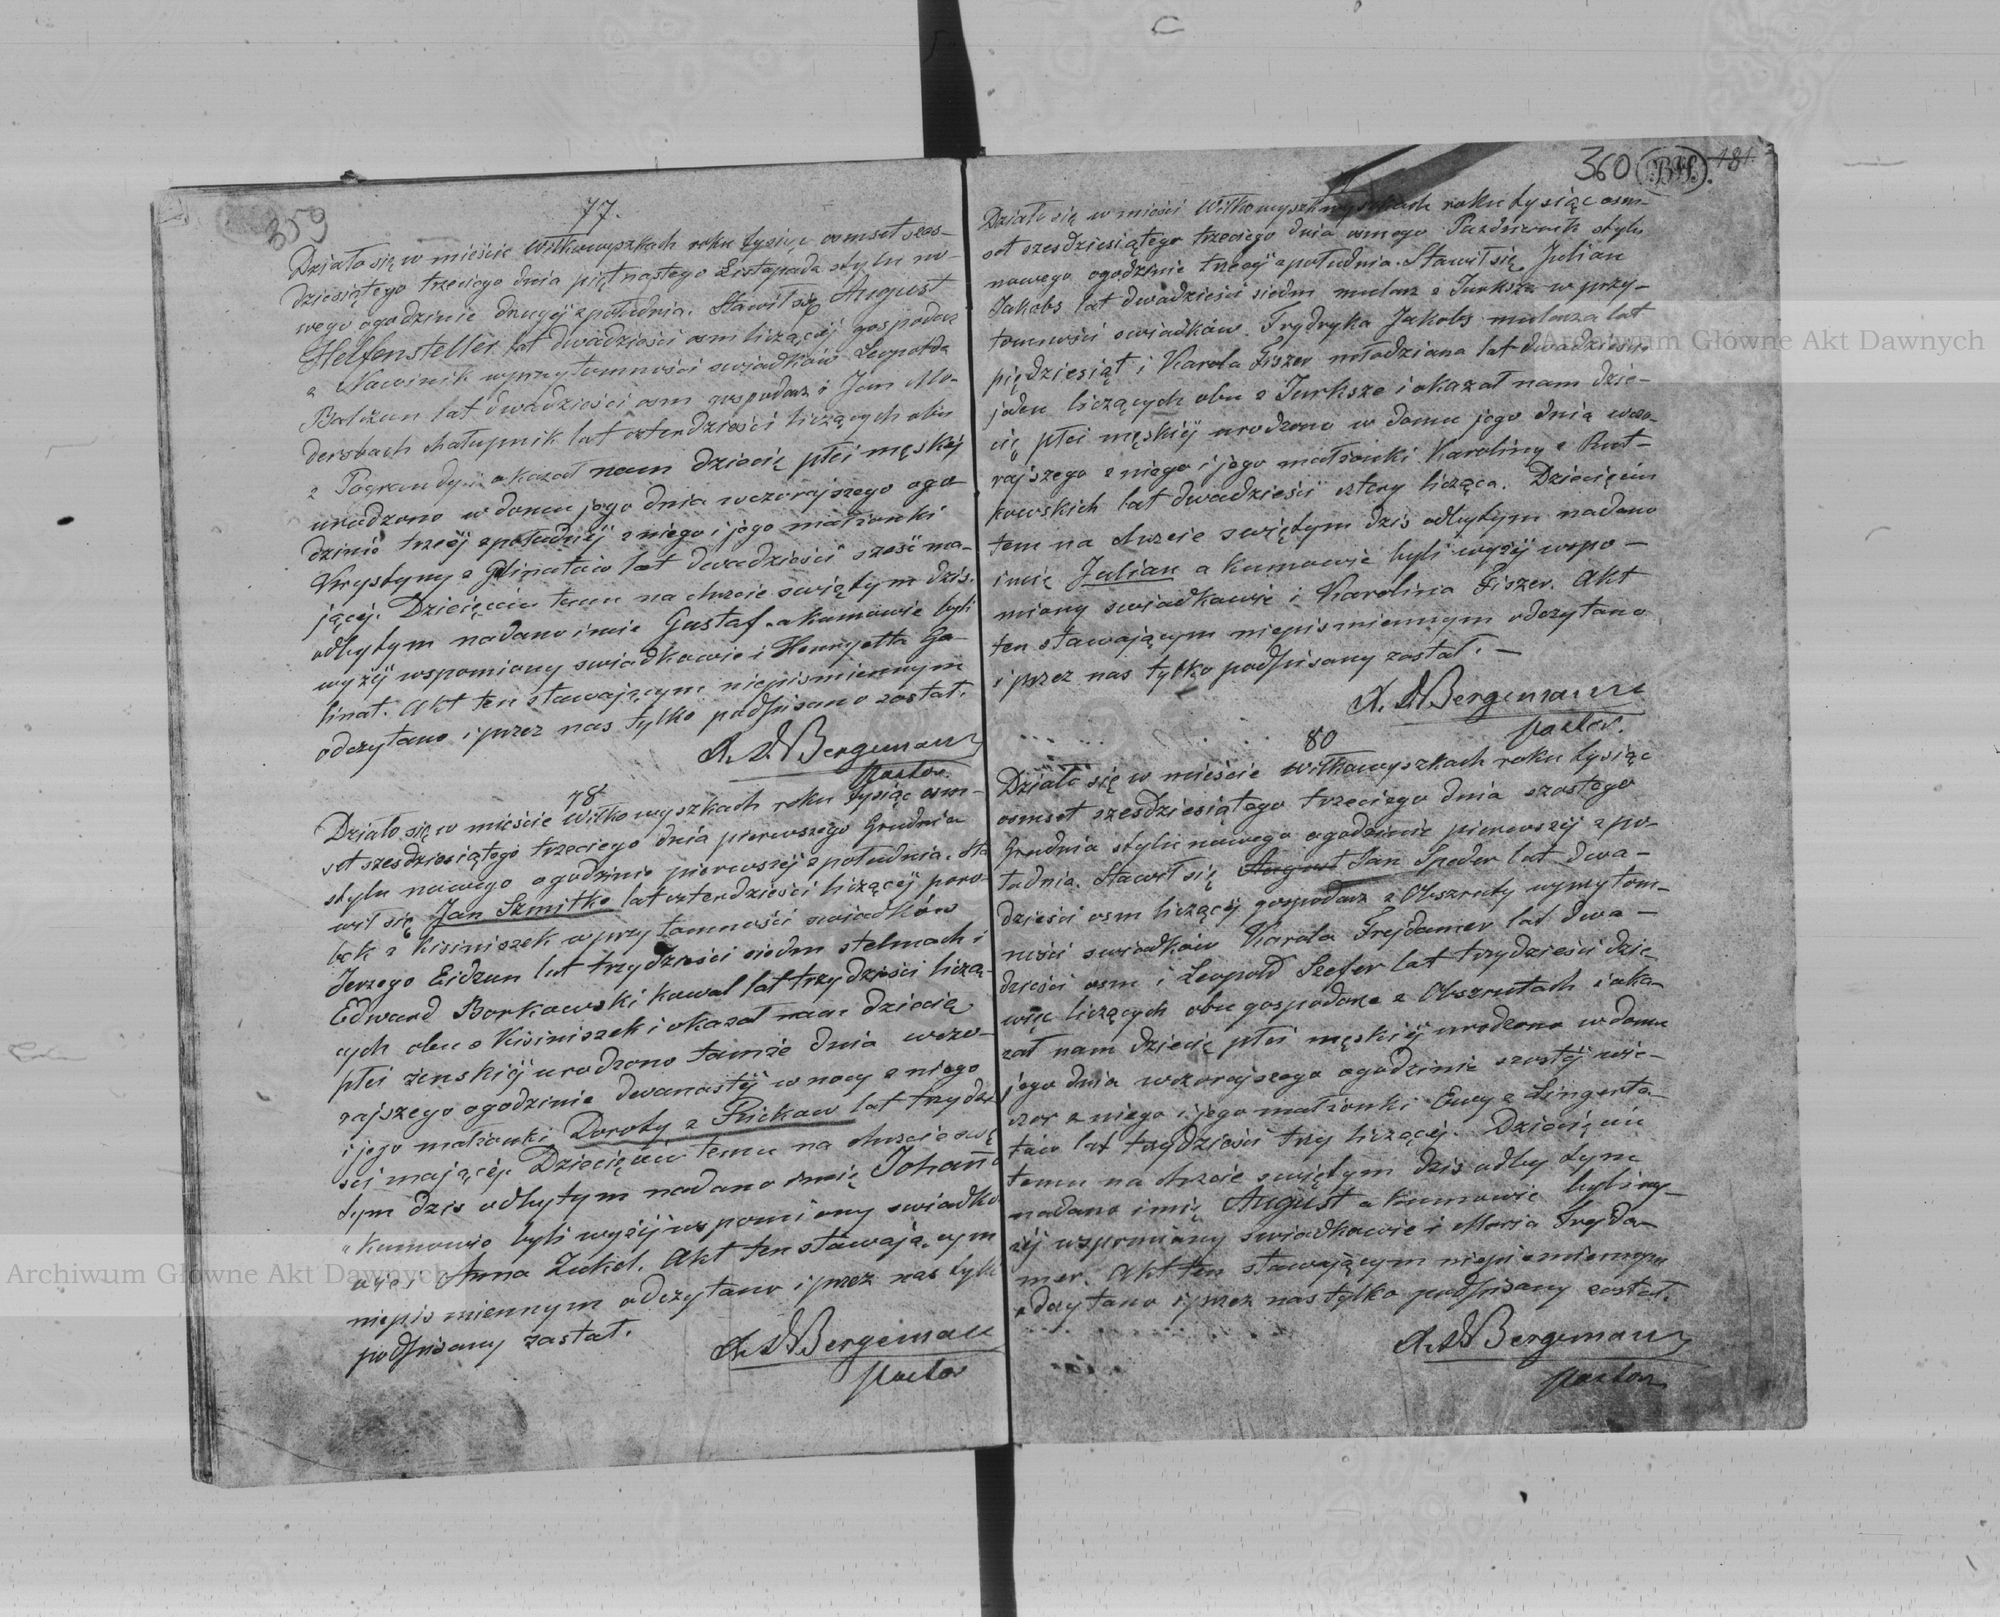 359
77.
Działo się w mieście Wiłkowyszkach roku tysiąc osmset szes-
dziesiątego trzeciego dnia piętnastego Listopada stylu no-
wego ogodzinie drugiej z południa. Stawił się August
Helfensteller lat dwadzieści osm liczący gospodarz
z Nawinik wprzytomności swiadków Leopolda
Balczun lat dwadzieści osm gospodarz i Jan Mo-
dersbach chałupnik lat czterdzieści liczących obu
z Pograndy i okazał nam dziecię płci męskiej
urodzone w domu jego dnia wczorajszego ogo-
dzinie trzeciej z południa z niego i jego małżonki
Krystyny z Glinatów lat dwadzieści szesć ma-
jącej. Dziecięciu temu na chrzcie swiętym dzis
odbytym nadano imie Gustaf a kumowie byli
wyżej wspomiony swiadkowie i Henryetta Ga-
linat. Akt ten stawającym niepismiennym
odczytano i przez nas tylko podpisano został.
A. D. Bergemann
Pastor.
78
Działo się w mieście Wiłkowyszkach roku tysiąc osm-
set szesdziesiątego trzeciego dnia pierwszego Grudnia
stylu nowego ogodzinie pierwszej z południa. Sta
wił się Jan Szmitke lat czterdzieści liczący paro-
bek z Kisiniszek wprzytomności swiadków
Jerzego Eidzun lat trzydzieści siedm stelmach i
Edward Borkowski kowal lat trzydzieści liczą-
cych obu z Kisiniszek i okazał nam dziecię
płci żenskiej urodzone tamże dnia wczo-
rajszego ogodzinie dwanastej w nocy z niego
i jego małżonki Doroty z Frickaw lat trzydzi
sci mającej. Dziecięciu temu na chrzcie swię
tym dzis odbytym nadano imię Johanna
a kumowie byli wyżej wspomiony swiadko
wie i Anna Zukel. Akt ten stawającym
niepismiennym odczytano i przez nas tylko
podpisany został.
A. D. Bergemann
Pastor
360 181
Działo się w mieści Wiłkowyszkach roku tysiąc osm-
set szesdziesiątego trzeciego dnia osmego Pazdziernik stylu
nowego ogodzinie trzeciej z południa. Stawił się Julian
Jakobs lat dwadzieści siedm mularz z Turksze w przy-
tomności swiadków. Frydryka Jakobs mularza lat
pięдziesiąt i Karola Fiszer młodziana lat dwadzieści
jeden liczących obu z Turksze i okazał nam dzie-
cię płci męskiej urodzone w domu jego dnia wczo-
rajszego z niego i jego małżonki Karoliny z Rut-
kowskich lat dwadzieści cztery licząca. Dziecięciu
temu na chrzcie swiętym dzis odbytym nadano
imię Julian a kumowie byli wyżej wspo-
miony swiadkowie i Karolina Fiszer. Akt
ten stawającym niepismiennym odczytano
i przez nas tylko podpisany został. —
A. D. Bergemann
Pastor.
80
Działo się w mieście Wiłkowyszkach roku tysiąc
osmset szesdziesiątego trzeciego dnia szostego
Grudnia stylu nowego ogodzinie pierwszej z po-
łudnia. Stawił się August Jan Speder lat dwa-
dzieści osm liczący gospodarz z Obszruty wprzytom-
ności swiadków Karola Frejdamer lat dwa-
dzieści osm i Leopold Szefer lat trzydzieści dzie-
więc liczących obu gospodarze z Obszrutach i oka-
zał nam dziecię płci męskiej urodzono w domu
jego dnia wczorajszego ogodzinie szostej wie-
czor z niego i jego małżonki Ewy z Lingerta-
tów lat trzydzieści trzy liczącej. Dziecięciu
temu na chrzcie swiętym dzis odbytym
nadano imię August a kumowie byli wy-
żej wspomiony swiadkowie i Maria Frejda-
mer. Akt ten stawającym niepismiennym
odczytano i przez nas tylko podpisany został.
A. D. Bergemann
Pastor
Archiwum Główne Akt Dawnych
Archiwum Główne Akt Dawnych